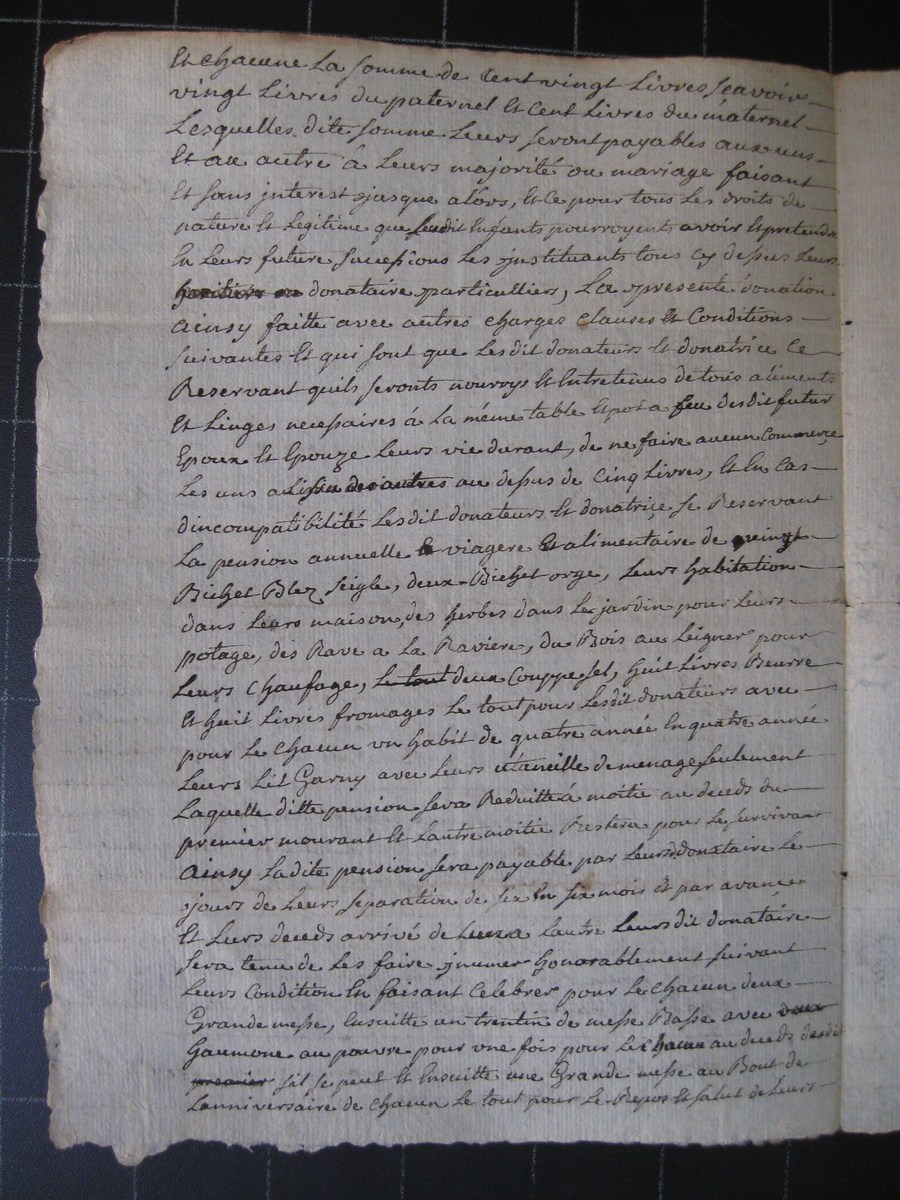 Et chacune La somme de Cent vingt Livres sçavoir
vingt Livres du paternel Et Cent Livres du maternel
Lesquelles dite somme Leurs seront payables aux uns
Et au autre a Leurs majorité ou mariage faisant
Et sans interest jusque alors, Et Ce pour tous Les droits de
nature Et Legitime que Lesdit Enfants pourroyent avoir Et pretendre
En Leurs future successions Les jnstituants tous cy dessus Leurs
heritiers ou donataire particulliers, La presente donation
ainsy faitte avec autres charges Clauses Et Conditions
suivantes Et qui sont que Lesdit donateurs Et donatrice Ce
Reservant quils seronts nourrys Et Entretenus de tous aliments
Et Linges necessaires á La méme table Et pot a feu desdit futur
Epoux Et Epouze Leurs vie durant, de ne faire aucun Commerçe
Les uns a Linsu des autres au dessus de Cinq Livres, Et En Cas
dincompatibilité Lesdit donateurs Et donatrice se Reservant
La pension annuelle Et viagere Et alimentaire de vingt
Bichet Blez seigle, deux Bichet orge, Leurs habitation
dans Leurs maison, des herbes dans Le jardin pour Leurs
potage, des Rave a La Raviere, du Bois au Leigner pour
Leurs Chaufage, Le tout deux Couppe sel, huit Livres Beurre
Et huit Livres fromages Le tout pour Lesdit donateurs avec
pour Le Chacun un habit de quatre année En quatre année
Leurs Lit Garny avec Leurs utancille de menage seulement
Laquelle ditte pension sera Reduitte á moitie au deceds du
premier mourant Et Lautre moitie Restera pour Le survivant
ainsy Ladite pension sera payable par Leursd donataire Le
jours de Leurs separation de six En six mois Et par avance
Et Leurs deceds arrivé de Lun a Lautre Leurs dit donataire
sera tenu de Les faire jnumer honorablement suivant
Leurs Condition En faisant Celebrer pour Le Chacun deux
Grande messe, Ensuitte un trentin de messe Basse avec
Laumone au pauvre pour une fois pour Le Chacun au deceds
premier sil se peut Et Ensuitte une Grande messe au Bout de
Lanniversaire de Chacun Le tout pour Le Repos Et salut de Leurs